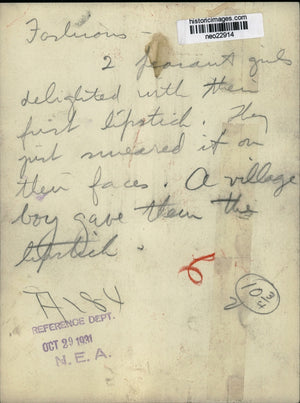 historicimages.com
neo22914
Fashions -
2 peasant girls
delighted with their
first lipstick. They
just smeared it on
their faces. A village
boy gave them the
lipstick.
6
10 3/4
2
A184
REFERENCE DEPT.
OCT 29 1931
N.E.A.